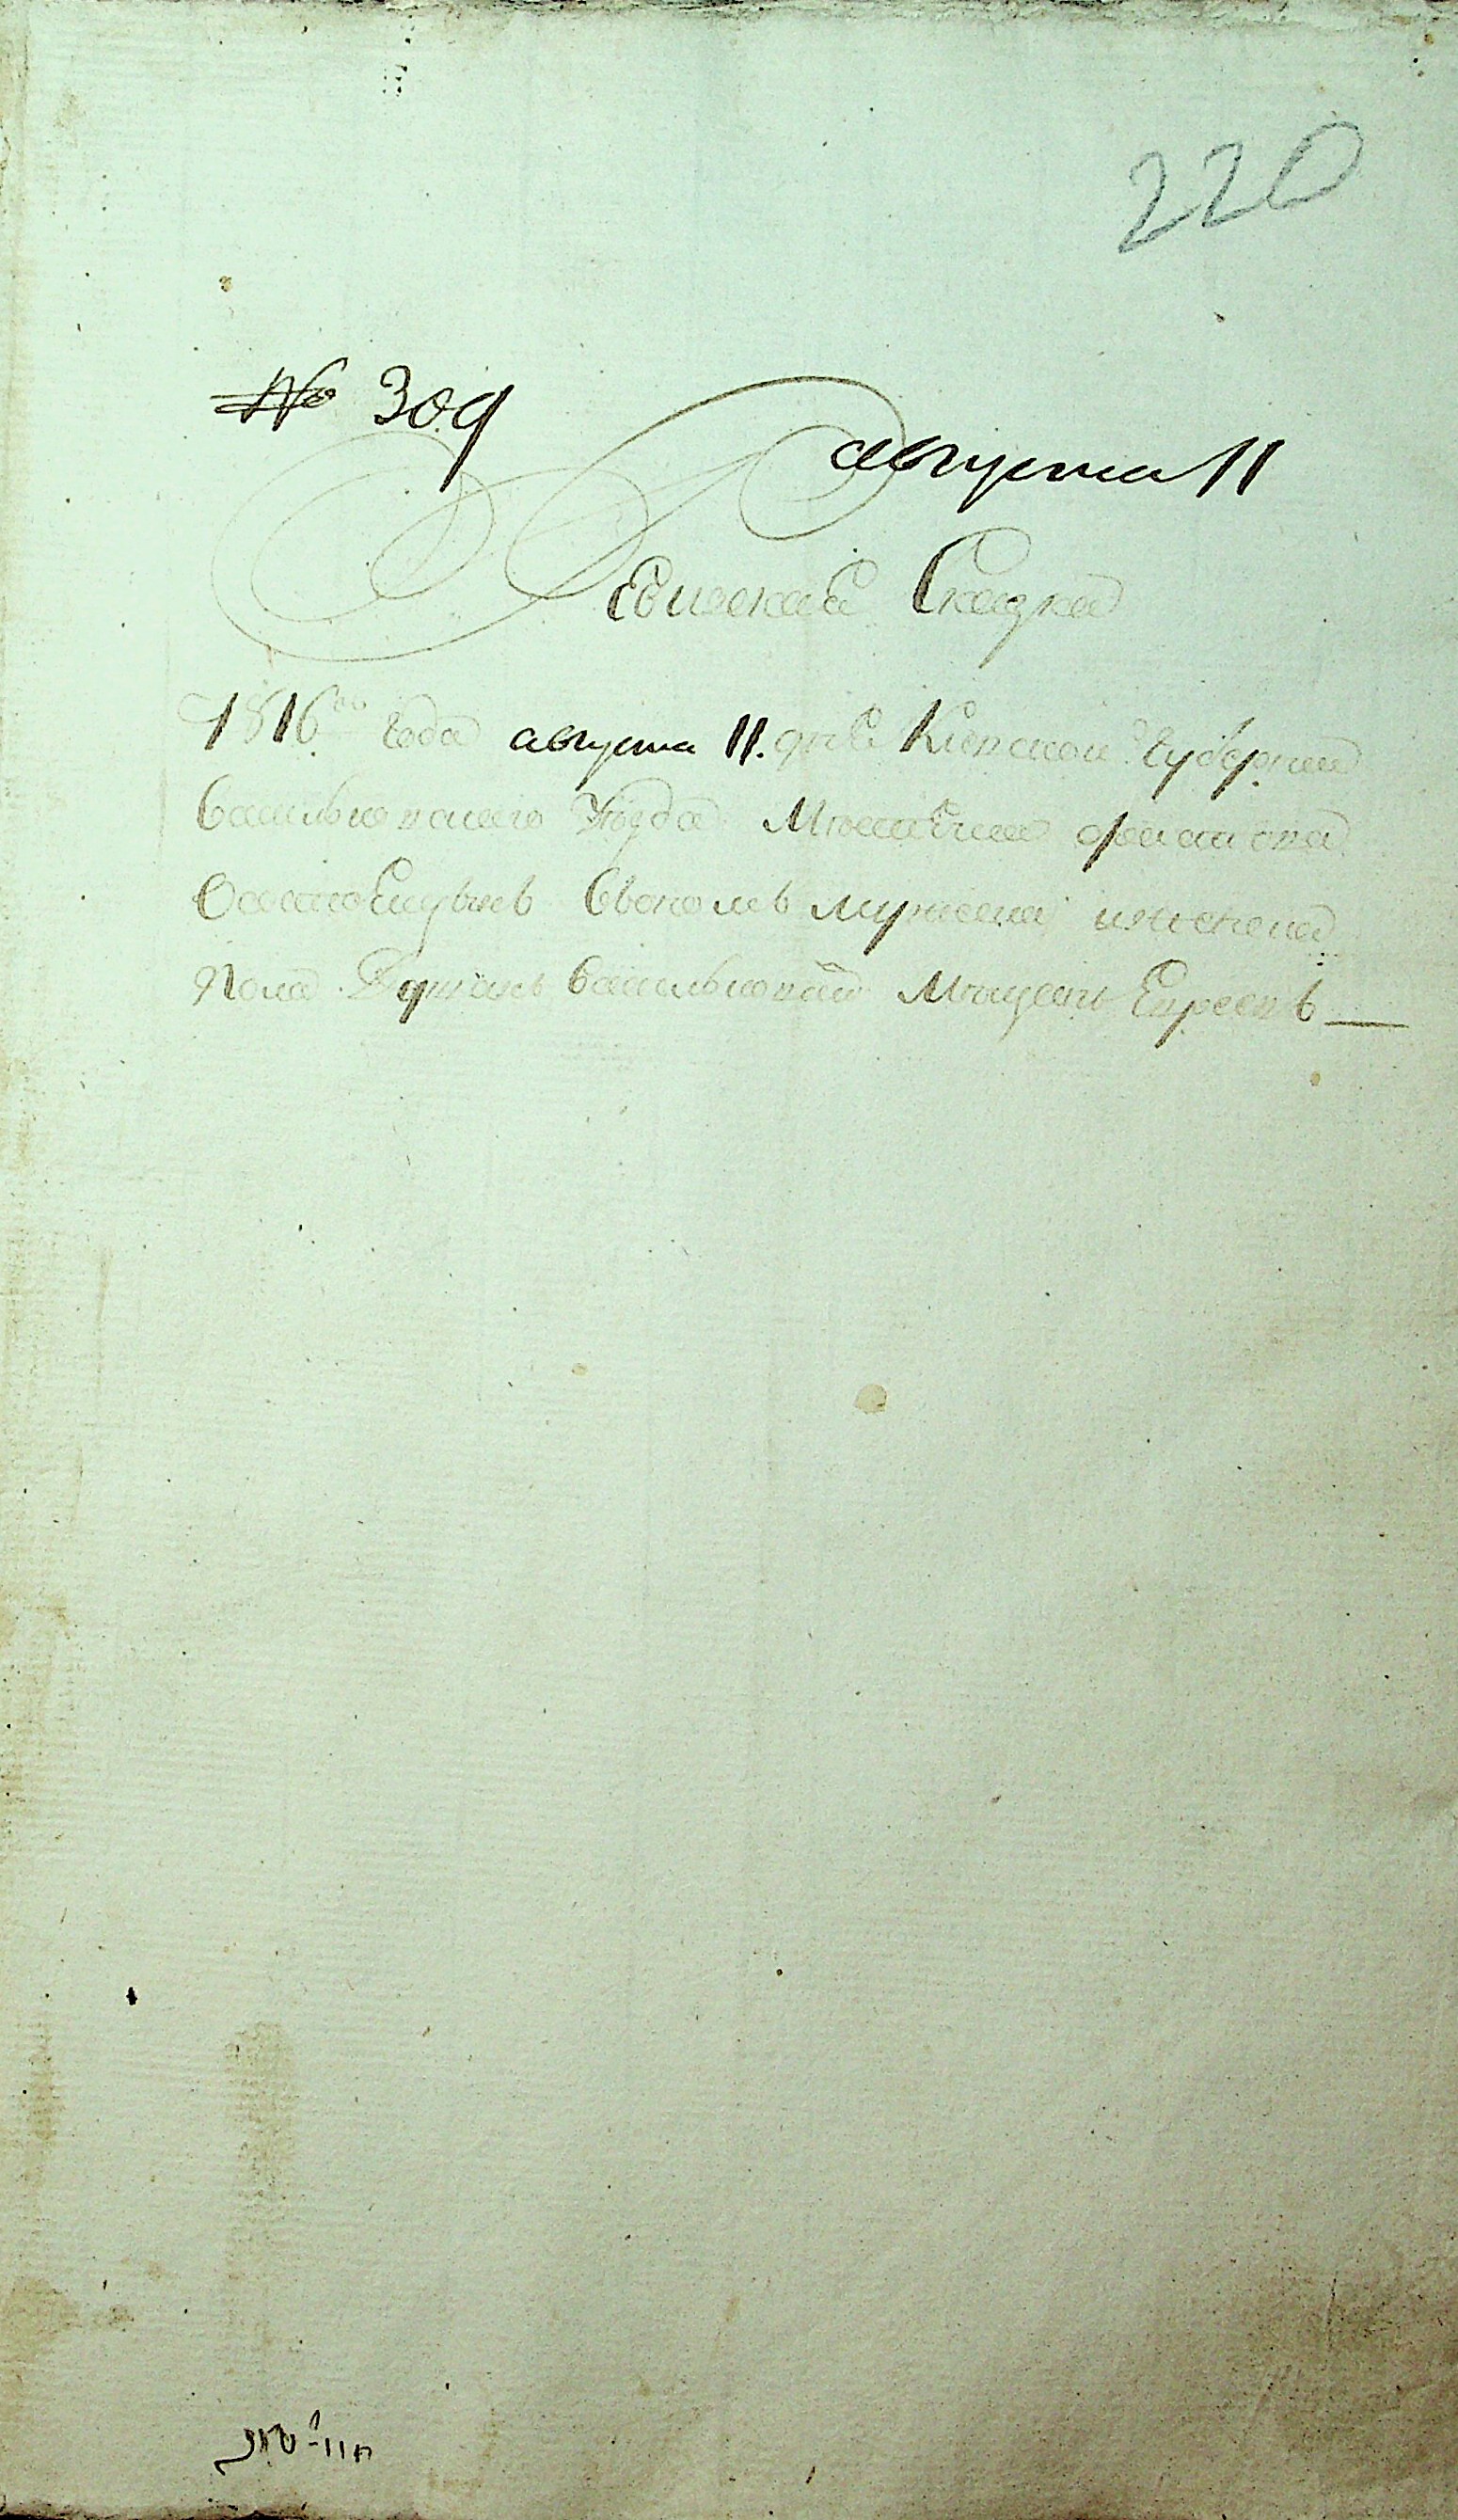 220
№ 309
августа 11
Ревизская Сказка
1816го года августа 11. дня Киевской Губернии
васильковского Уезда Местечка
состоящихъ мужеска и женска
пола Душахъ васильковскихъ Мещанъ Евреевъ —